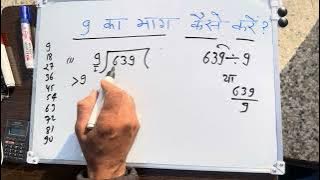 9 का भाग कैसे करें?
9
18
27
36
45
54
63
72
81
90
(1)
9)639(
>9
639÷9
या
639
9